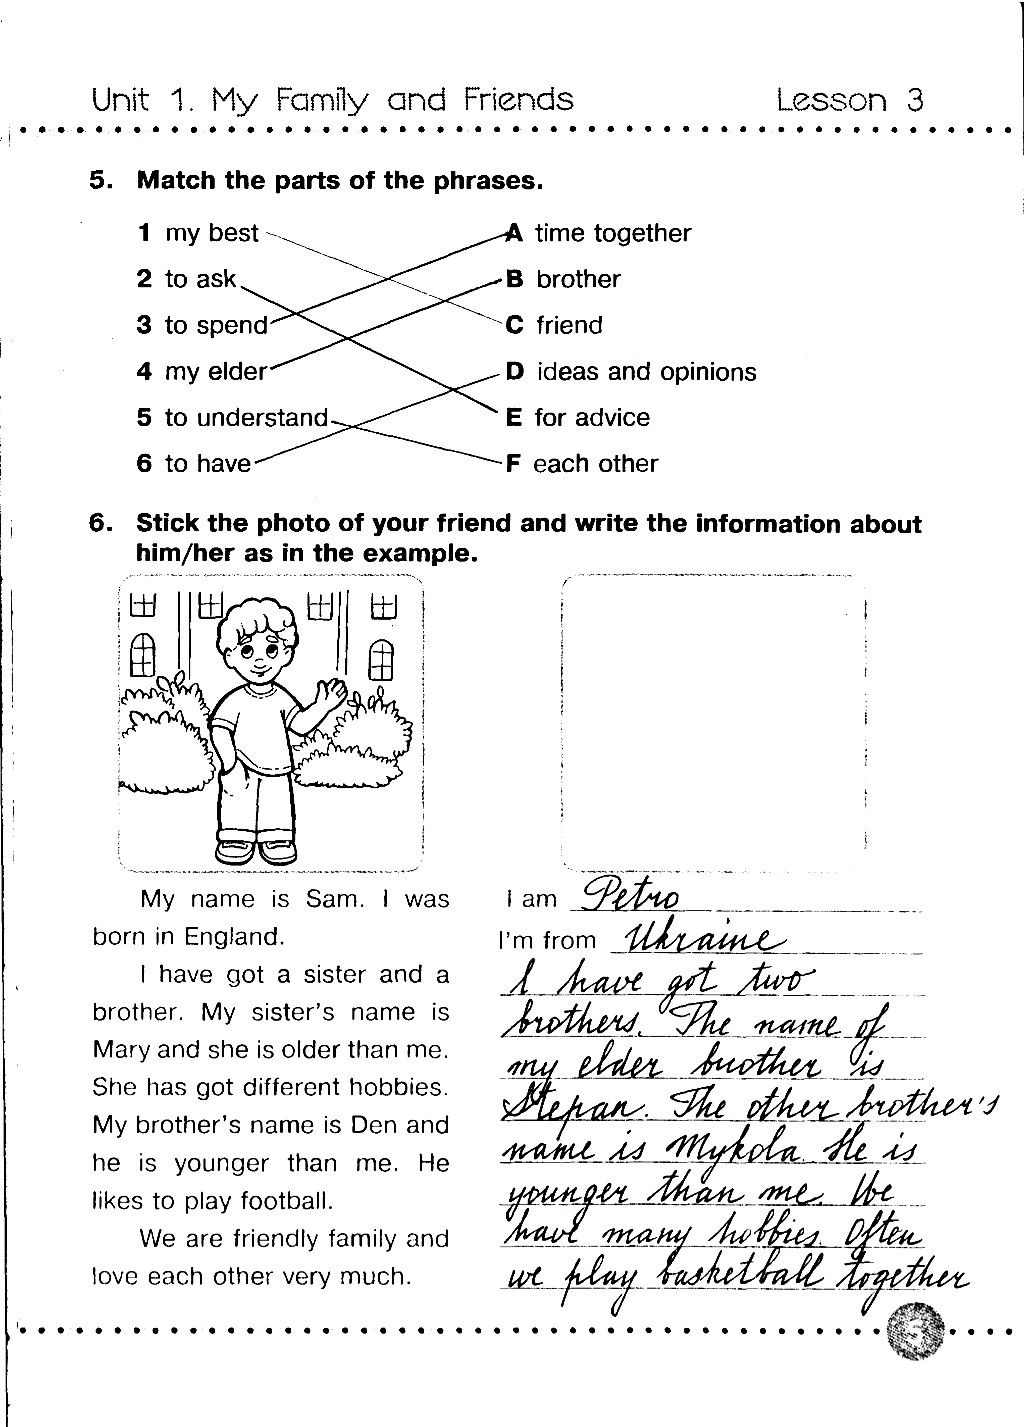 Unit 1. My Family and Friends Lesson 3
5. Match the parts of the phrases.
1 my best A time together
2 to ask B brother
3 to spend C friend
4 my elder D ideas and opinions
5 to understand E for advice
6 to have F each other
6. Stick the photo of your friend and write the information about
him/her as in the example.
My name is Sam. I was
born in England.
I have got a sister and a
brother. My sister's name is
Mary and she is older than me.
She has got different hobbies.
My brother's name is Den and
he is younger than me. He
likes to play football.
We are friendly family and
love each other very much.
I am Petro
I'm from Ukraine
I have got two
brothers. The name of
my elder brother is
Stepan. The other brother's
name is Mykola. He is
younger than me. We
have many hobbies. Often
we play basketball together
5